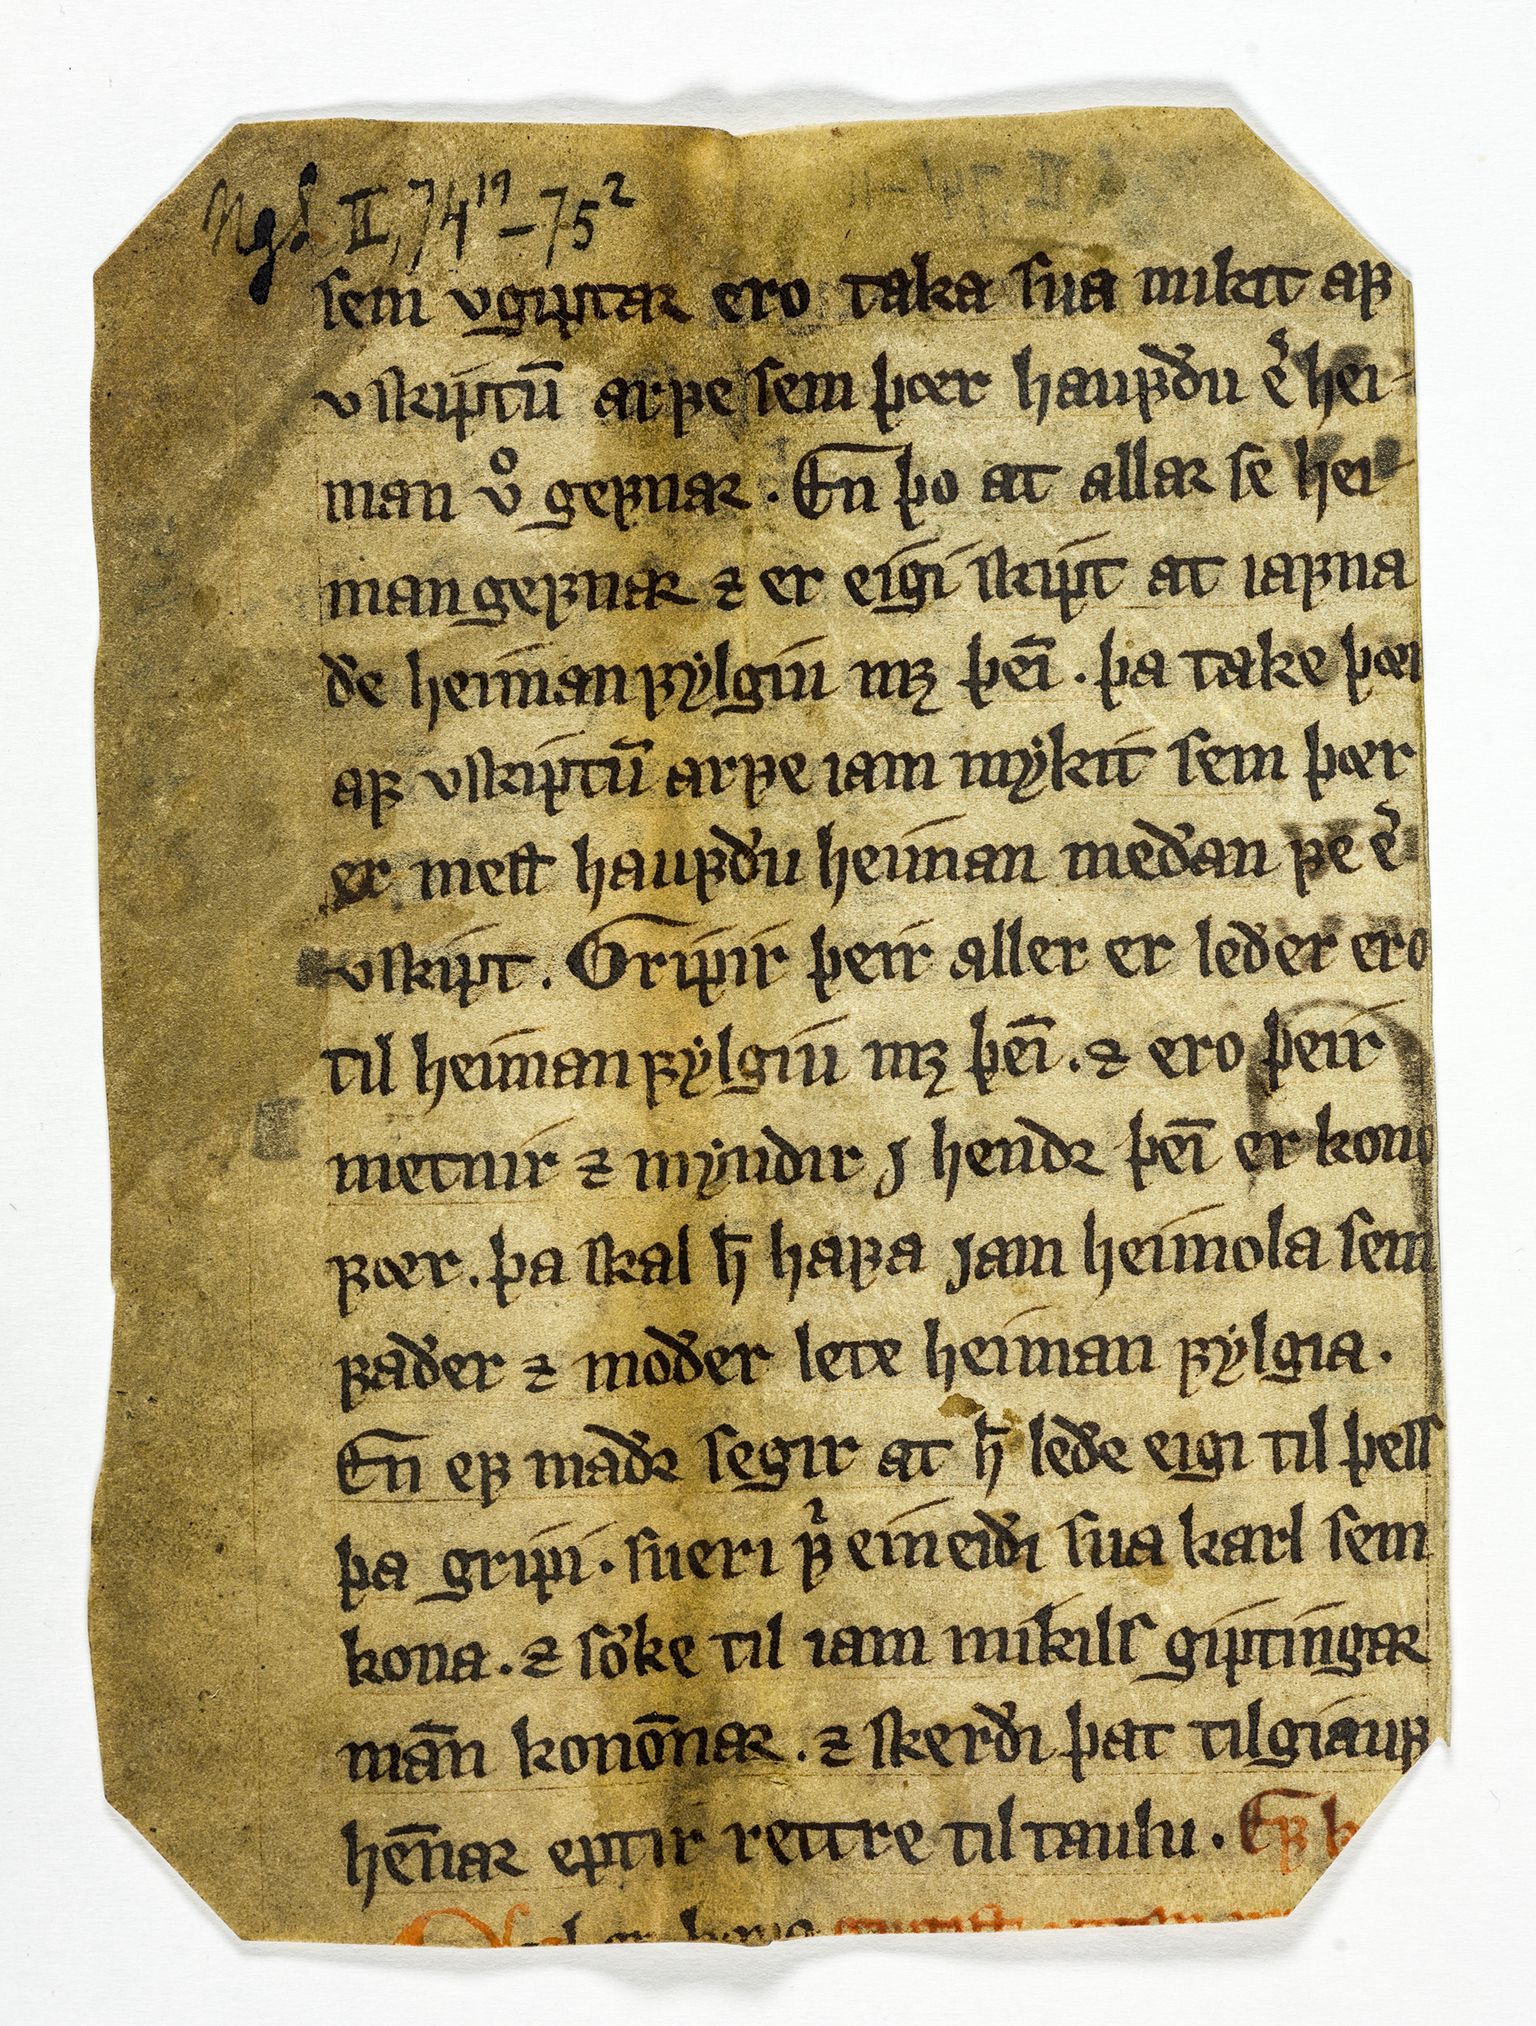 NgL II, 74¹⁹–75²
sem vgiptar ero taka sua mikit aꝼ
vskiptū arꝼe sem þær hauꝼðu e᷎ʼ hei-
man vͦ geꝼnar . En þo at allar se hei
man geꝼnar ⁊ er eigi skipt at iaꝼna
ðe heiman ꝼylgiu mꝫ þeī . þa take þæi
aꝼ vskiptū arꝼe iam mykit sem þær
er mest hauꝼðu heiman meðan ꝼe e᷎ʼ
vskipt . Gripir þeir aller er leðer ero
til heiman ꝼylgiu mꝫ þeī . ⁊ ero þeir
metnir ⁊ myndir j hendꝛ þeī er kono
ꝼær . þa skal ħ haꝼa jam heimola sem
ꝼaðer ⁊ moðer lete heiman ꝼylgia .
En eꝼ maðꝛ segir at ħ leðe eigi til þess
þa gripi . sueri ꝼͥ ein eiði sua karl sem
kona . ⁊ söke til iam mikils giptingar
mān konōnar . ⁊ skerði þat tilgiauꝼ
hēnar eptir rettre til taulu . Eꝼ k